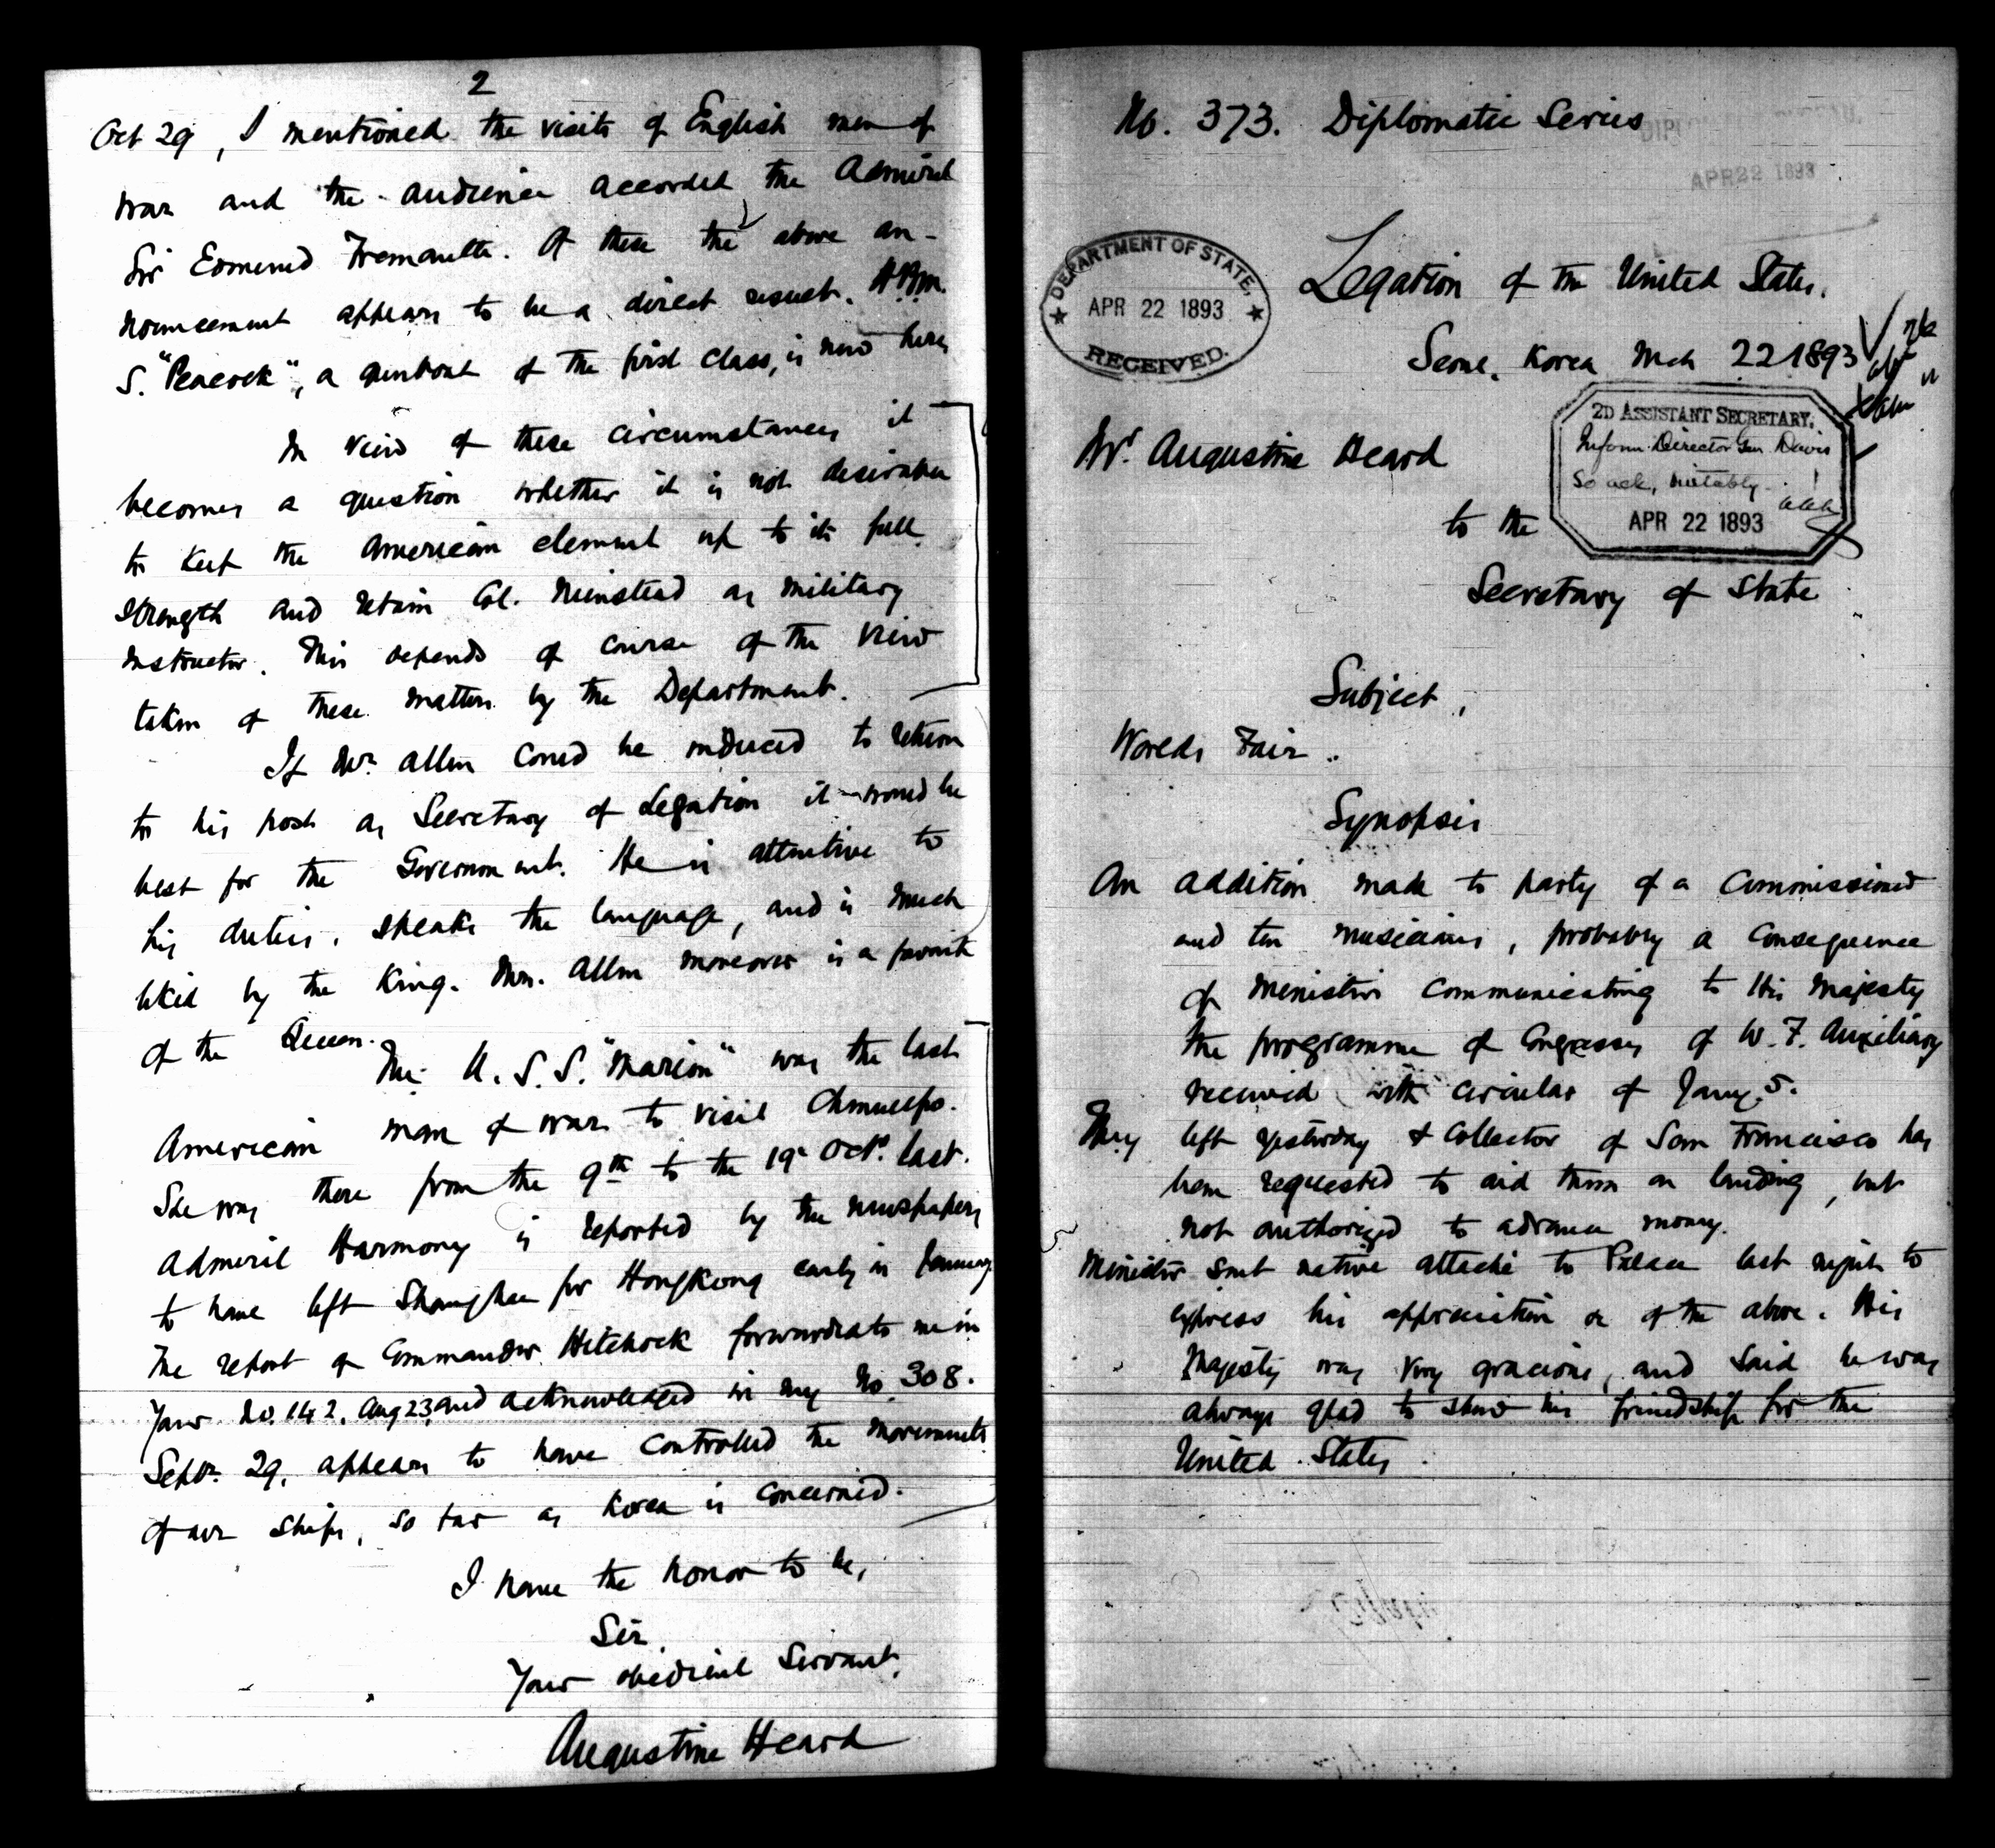 2
Oct 29, I mentioned the visits of English men of
war and the audience accorded the Admiral
Sir Edmund Fremantle. Of these the above an-
nouncement appears to be a direct result. H.B.M.
S. "Peacock", a gunboat of the first class, is now here.
In view of these circumstances it
becomes a question whether it is not desirable
to keep the American element up to its full
strength and retain Col. Nienstead as military
instructor. This depends of course of the view
taken of these matters by the Department.
If Dr. Allen could be induced to return
to his post as Secretary of Legation it would be
best for the Government. He is attentive to
his duties, speaks the language, and is much
liked by the King. Mrs. Allen moreover is a favorite
of the Queen.
The U.S.S. "Marion" was the last
American man of war to visit Chmulpo.
She was there from the 9th to the 19 Octr. last.
Admiral Harmony is reported by the newspapers
to have left Shanghai for Hongkong early in January
The report of Commander Hitchcock forwarded to me in
Your No. 142, Aug 23, and acknowledged in my No. 308.
Septr. 29, appears to have controlled the movements
of our ships, so far as Korea is concerned.
I have the honor to be,
Sir,
Your obedient Servant,
Augustine Heard
No. 373. Diplomatic Series
APR 22 1893
Legation of the United States,
DEPARTMENT OF STATE,
APR 22 1893
RECEIVED.
Seoul, Korea Mch 22 1893
2D ASSISTANT SECRETARY.
Inform Director Gen Davis
So ack, suitably.
APR 22 1893
Mr. Augustine Heard
to the
Secretary of State
Subject,
Worlds Fair.
Synopsis
An addition made to party of a Commissioner
and ten musicians, probably a consequence
of Minister communicating to His Majesty
the programme of Congresses of W. F. Auxiliary
received with circular of Jany. 5.
They left yesterday & Collector of San Francisco has
been requested to aid them on landing, but
not authorized to advance money.
Minister sent native attaché to Palace last night to
express his appreciation of the above. His
Majesty was very gracious, and said he was
always glad to show his friendship for the
United States.